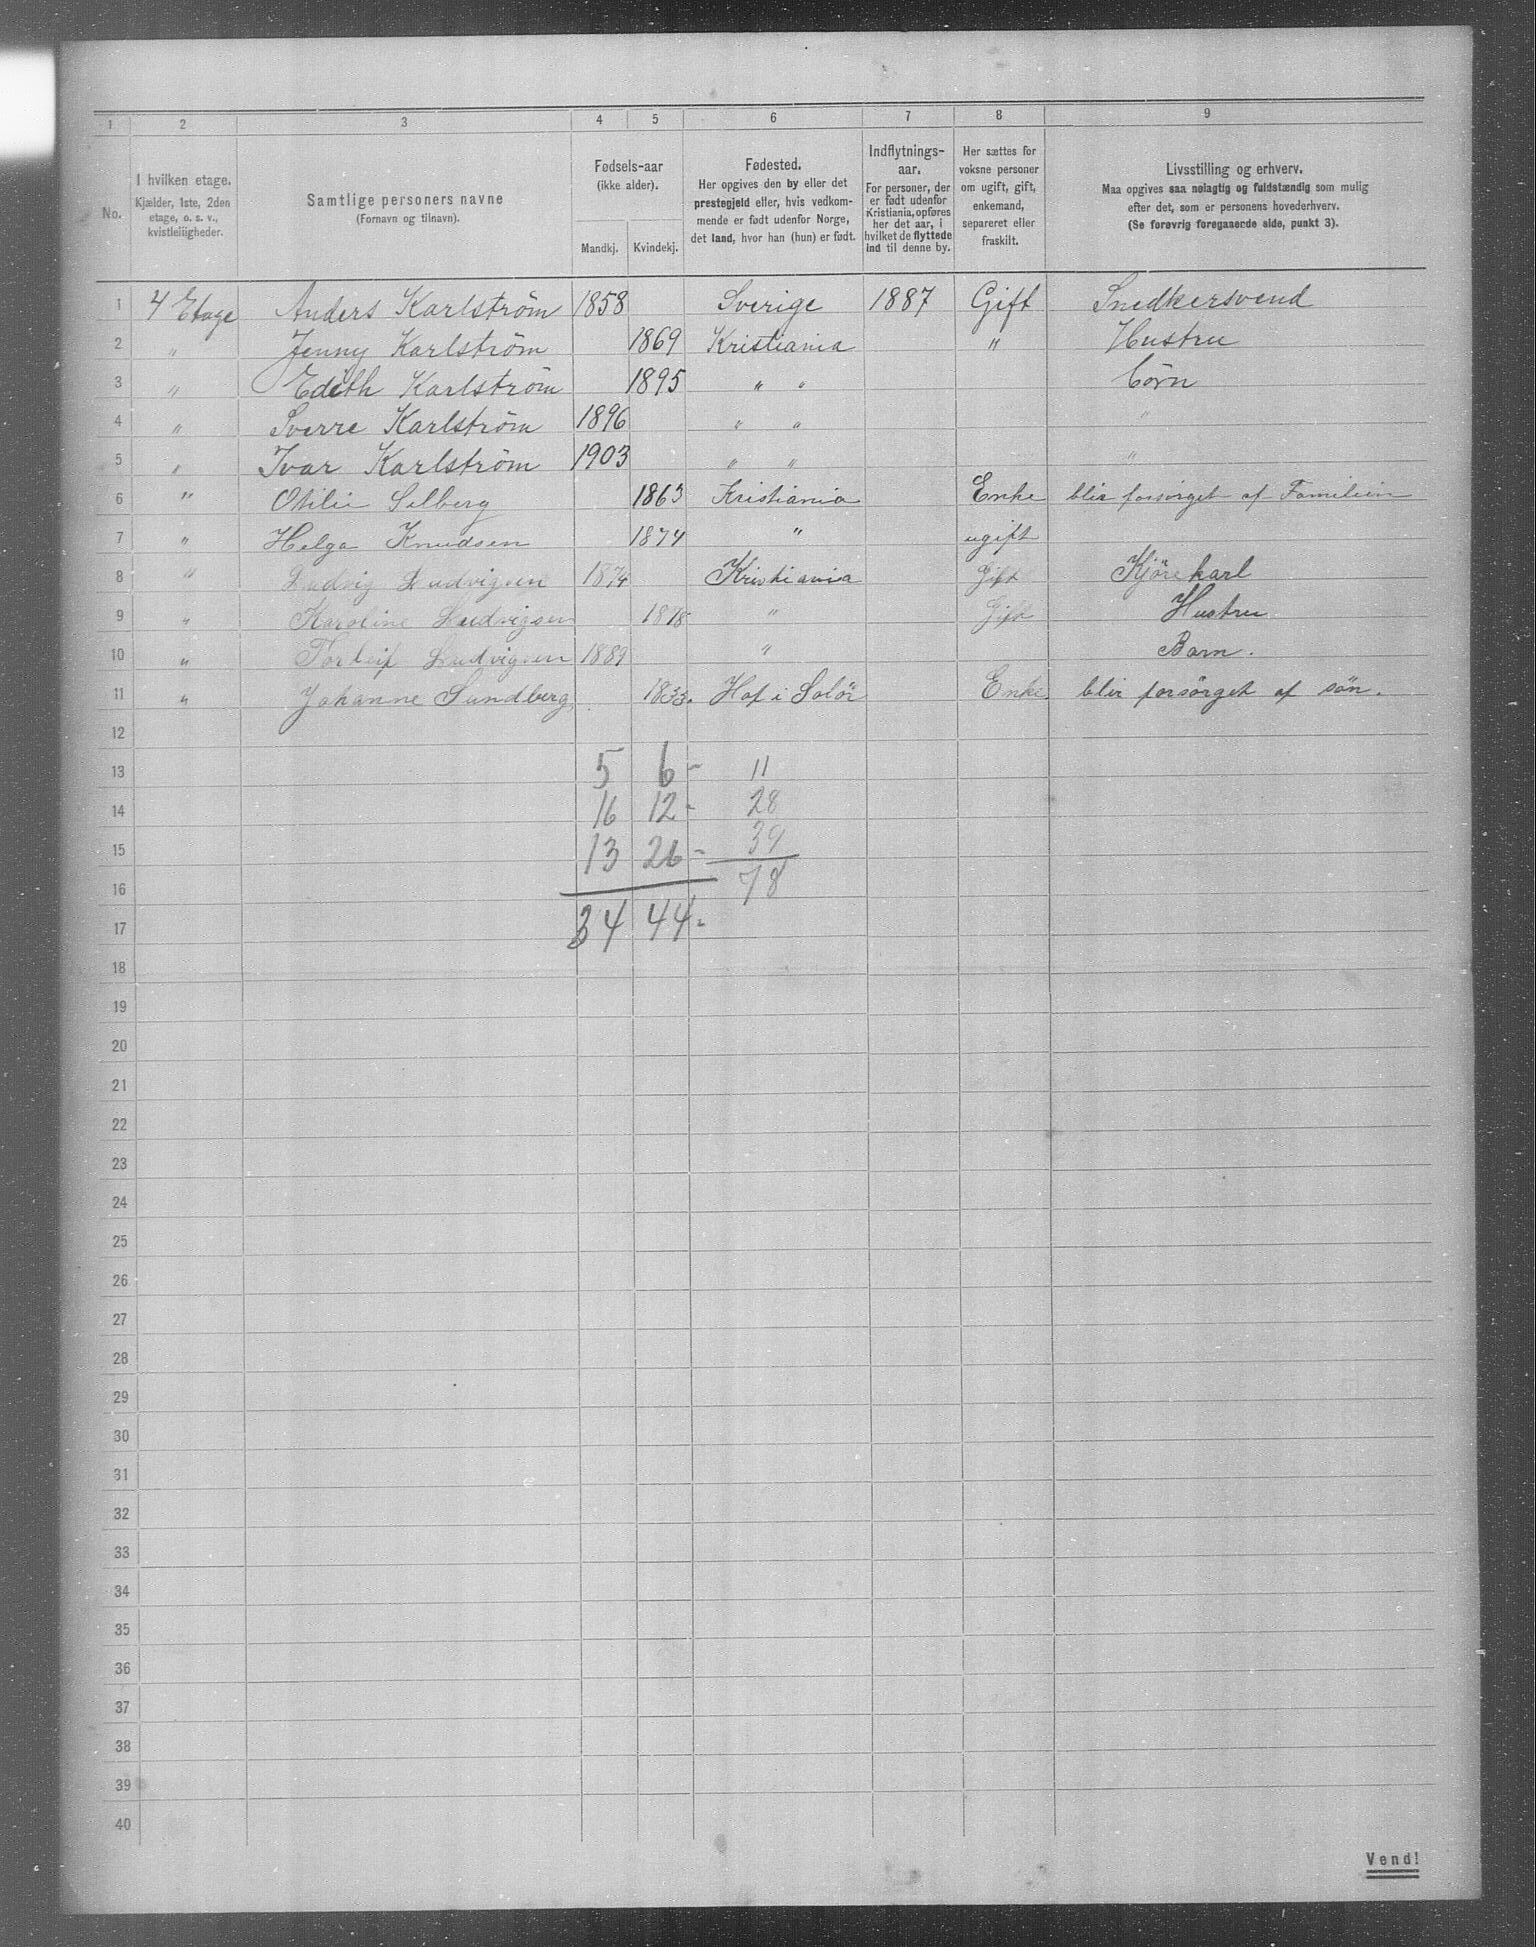 1 2 3 4 5 6 7 8 9
No.
I hvilken etage.
Kjælder, 1ste, 2den
etage, o. s. v.,
kvistleiligheder.
Samtlige personers navne
(Fornavn og tilnavn).
Fødsels-aar
(ikke alder).
Mandkj. Kvindekj.
Fødested.
Her opgives den by eller det
prestegjeld eller, hvis vedkom-
mende er født udenfor Norge,
det land, hvor han (hun) er født.
Indflytnings-
aar.
For personer, der
er født udenfor
Kristiania, opføres
her det aar, i
hvilket de flyttede
ind til denne by.
Her sættes for
voksne personer
om ugift, gift,
enkemand,
separeret eller
fraskilt.
Livsstilling og erhverv.
Maa opgives saa nøiagtig og fuldstændig som mulig
efter det, som er personens hovederhverv.
(Se forøvrig foregaaende side, punkt 3).
1 4 Etage Anders Karlström 1858 Sverige 1887 Gift Snedkersvend
2 " Jenny Karlström 1869 Kristiania " Hustru
3 " Edith Karlström 1895 " " Börn
4 " Sverre Karlström 1896 " " "
5 " Ivar Karlström 1903 " " "
6 " Otilie Solberg 1863 Kristiania Enke blir forsörget af Familien
7 " Helga Knudsen 1874 " ugift
8 " Ludvig Ludvigsen 1874 Kristiania Gift Kjörekarl
9 " Karoline Ludvigsen 1878 " Gift Hustru
10 " Torleif Ludvigsen 1889 " Barn.
11 " Johanne Sundberg, 1833. Hof i Solör Enke blir forsörget af sön.
12
13 5 6 - 11
14 16 12 - 28
15 13 26 - 39
16 78
17 34 44 -
18
19
20
21
22
23
24
25
26
27
28
29
30
31
32
33
34
35
36
37
38
39
40
Vend!